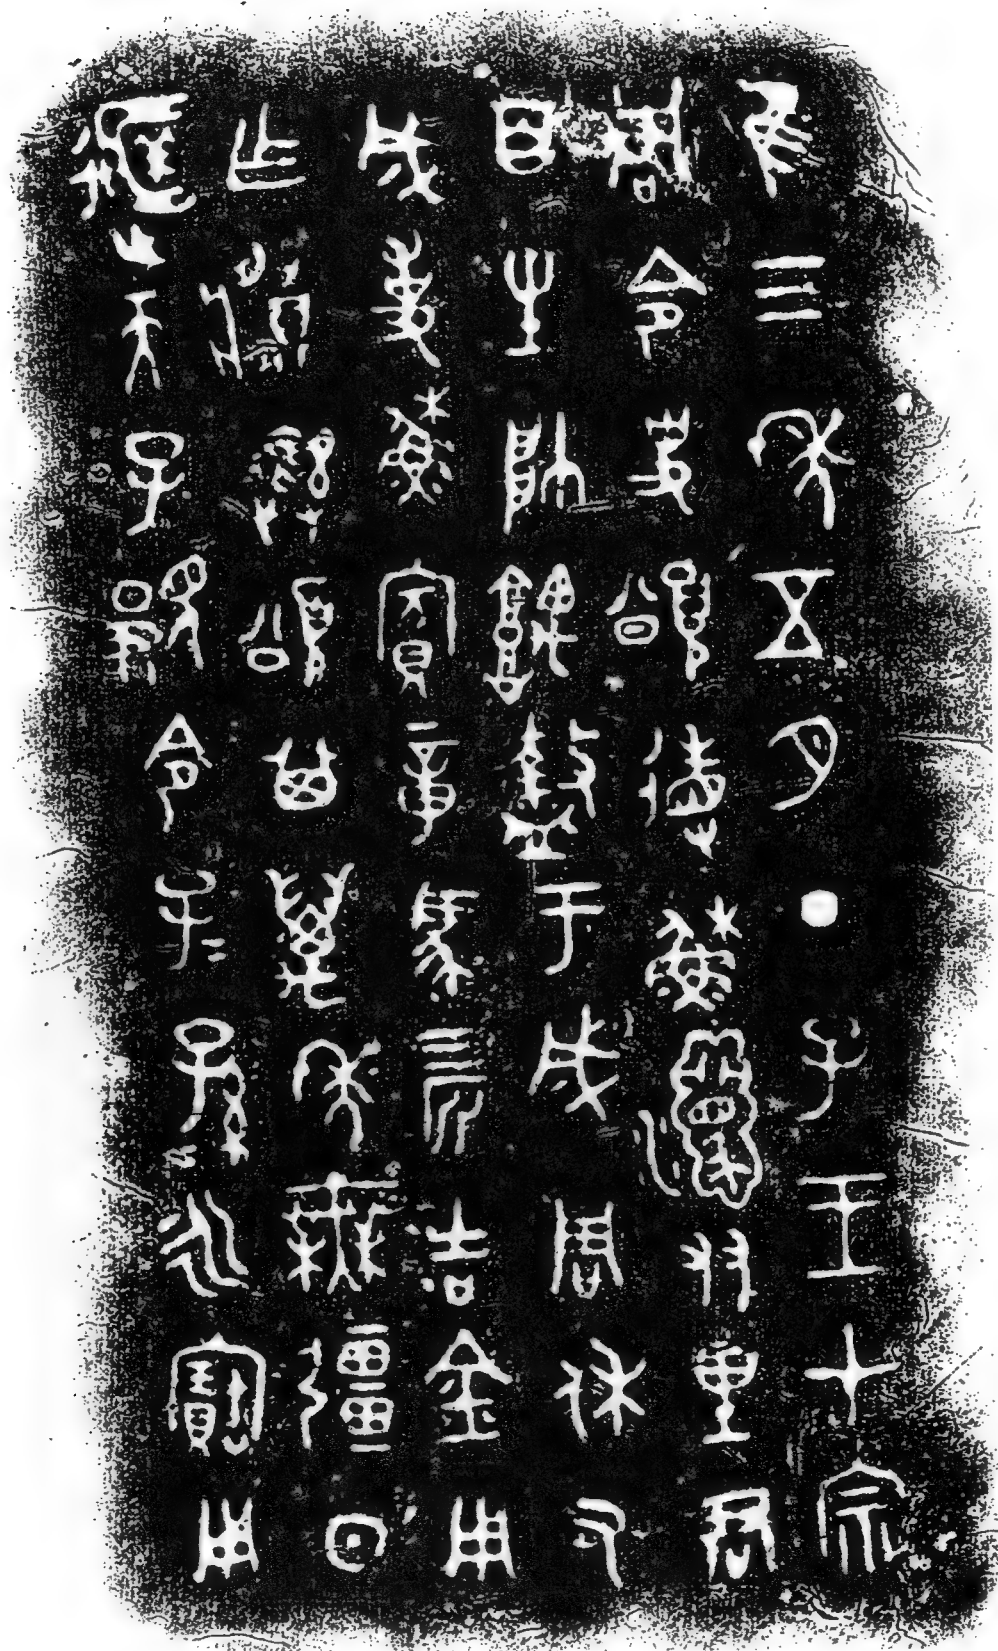 隹三年五月丁子王才宗
周令史頌省蘇𤅊友里君
百生帥堣盩于成周休又
成事蘇賓章馬四匹吉金用
乍䵼彝頌其萬年無疆日
𨒌天子顯令子＝孫＝永寶用